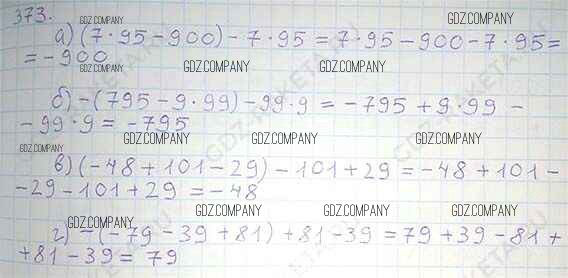 373.
GDZ.COMPANY GDZ.COMPANY
а) (7·95-900)-7·95=7·95-900-7·95=
=-900
GDZ.COMPANY GDZ.COMPANY
б) -(795-9·99)-99·9=-795+9·99-
-99·9=-795
GDZ.COMPANY GDZ.COMPANY GDZ.COMPANY
в) (-48+101-29)-101+29=-48+101-
-29-101+29=-48
GDZ.COMPANY GDZ.COMPANY GDZ.COMPANY
г) -(-79-39+81)+81-39=79+39-81+
+81-39=79